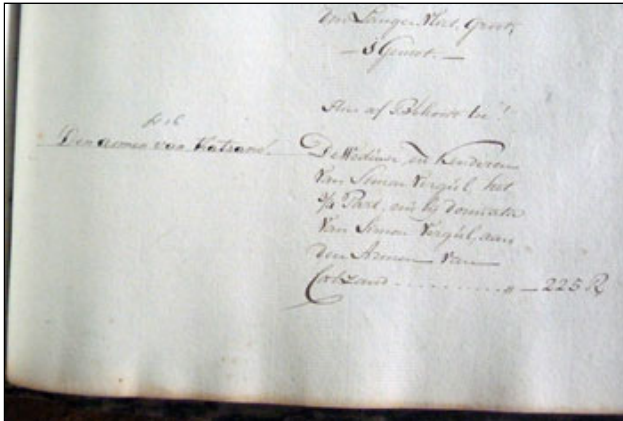 den Langen Mat, Groot,
— 's Gemet. —
Hier af Behoort toe!
Den armen van Katsand.
De Weduwe en Kinderen
Van Simon Vergúl, het
Part, en bij donnatie
Van Simon Vergúl, aan
den Armen Van
Catzand . . . . . . . . . . „ — 225 R